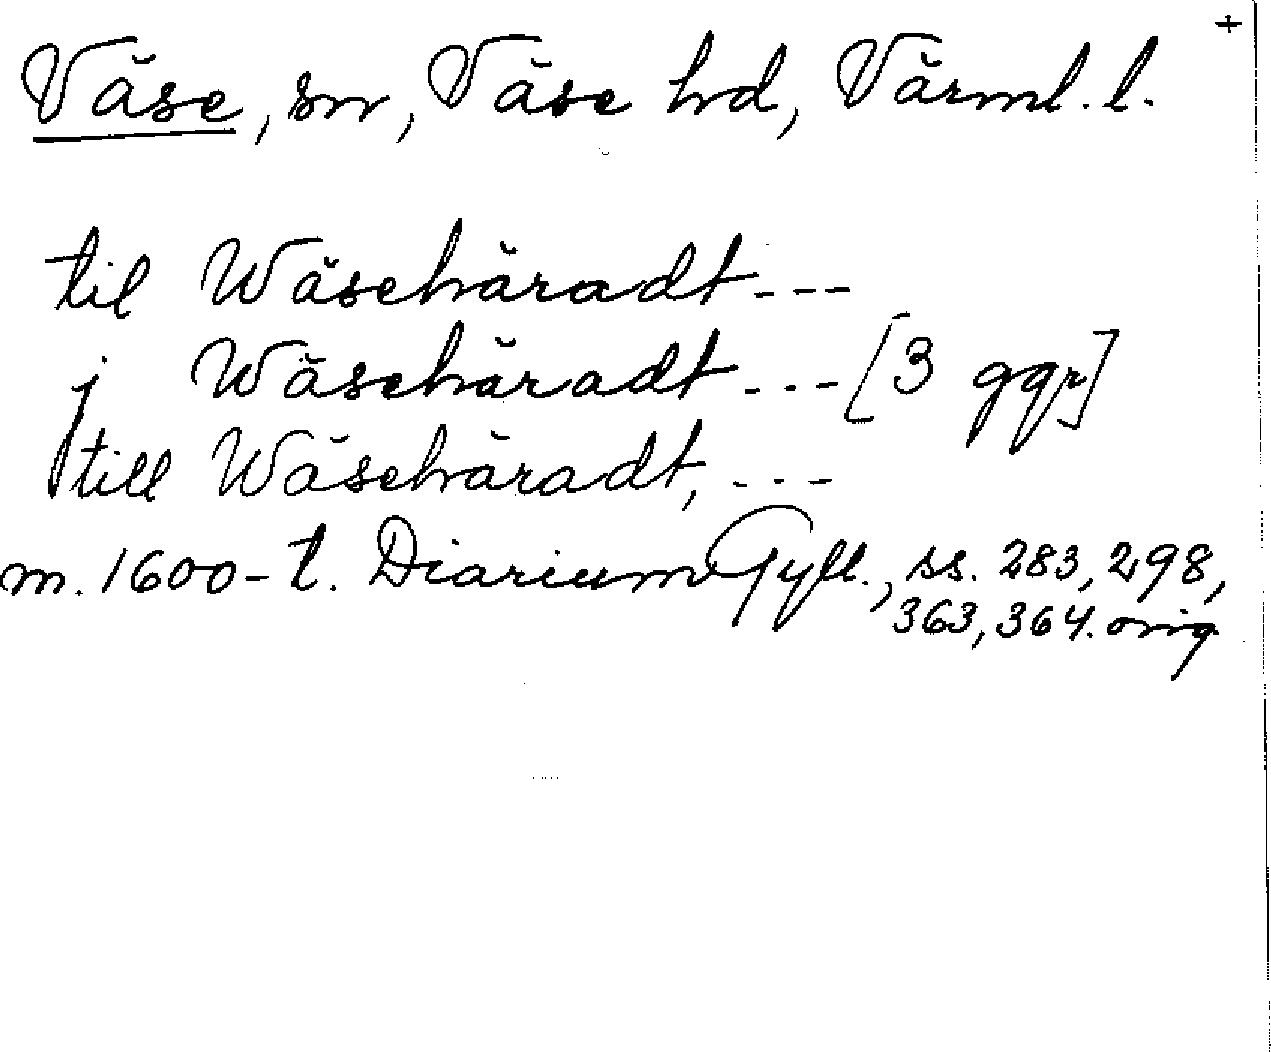 +
Väse, sn, Väse hd, Värml. l.
til Wäsehäradt - - -
j Wäsehäradt - - - [3 ggr]
till Wäsehäradt, - - -
m. 1600-t. Diarium Gyll., ss. 283, 298,
363, 364. orig